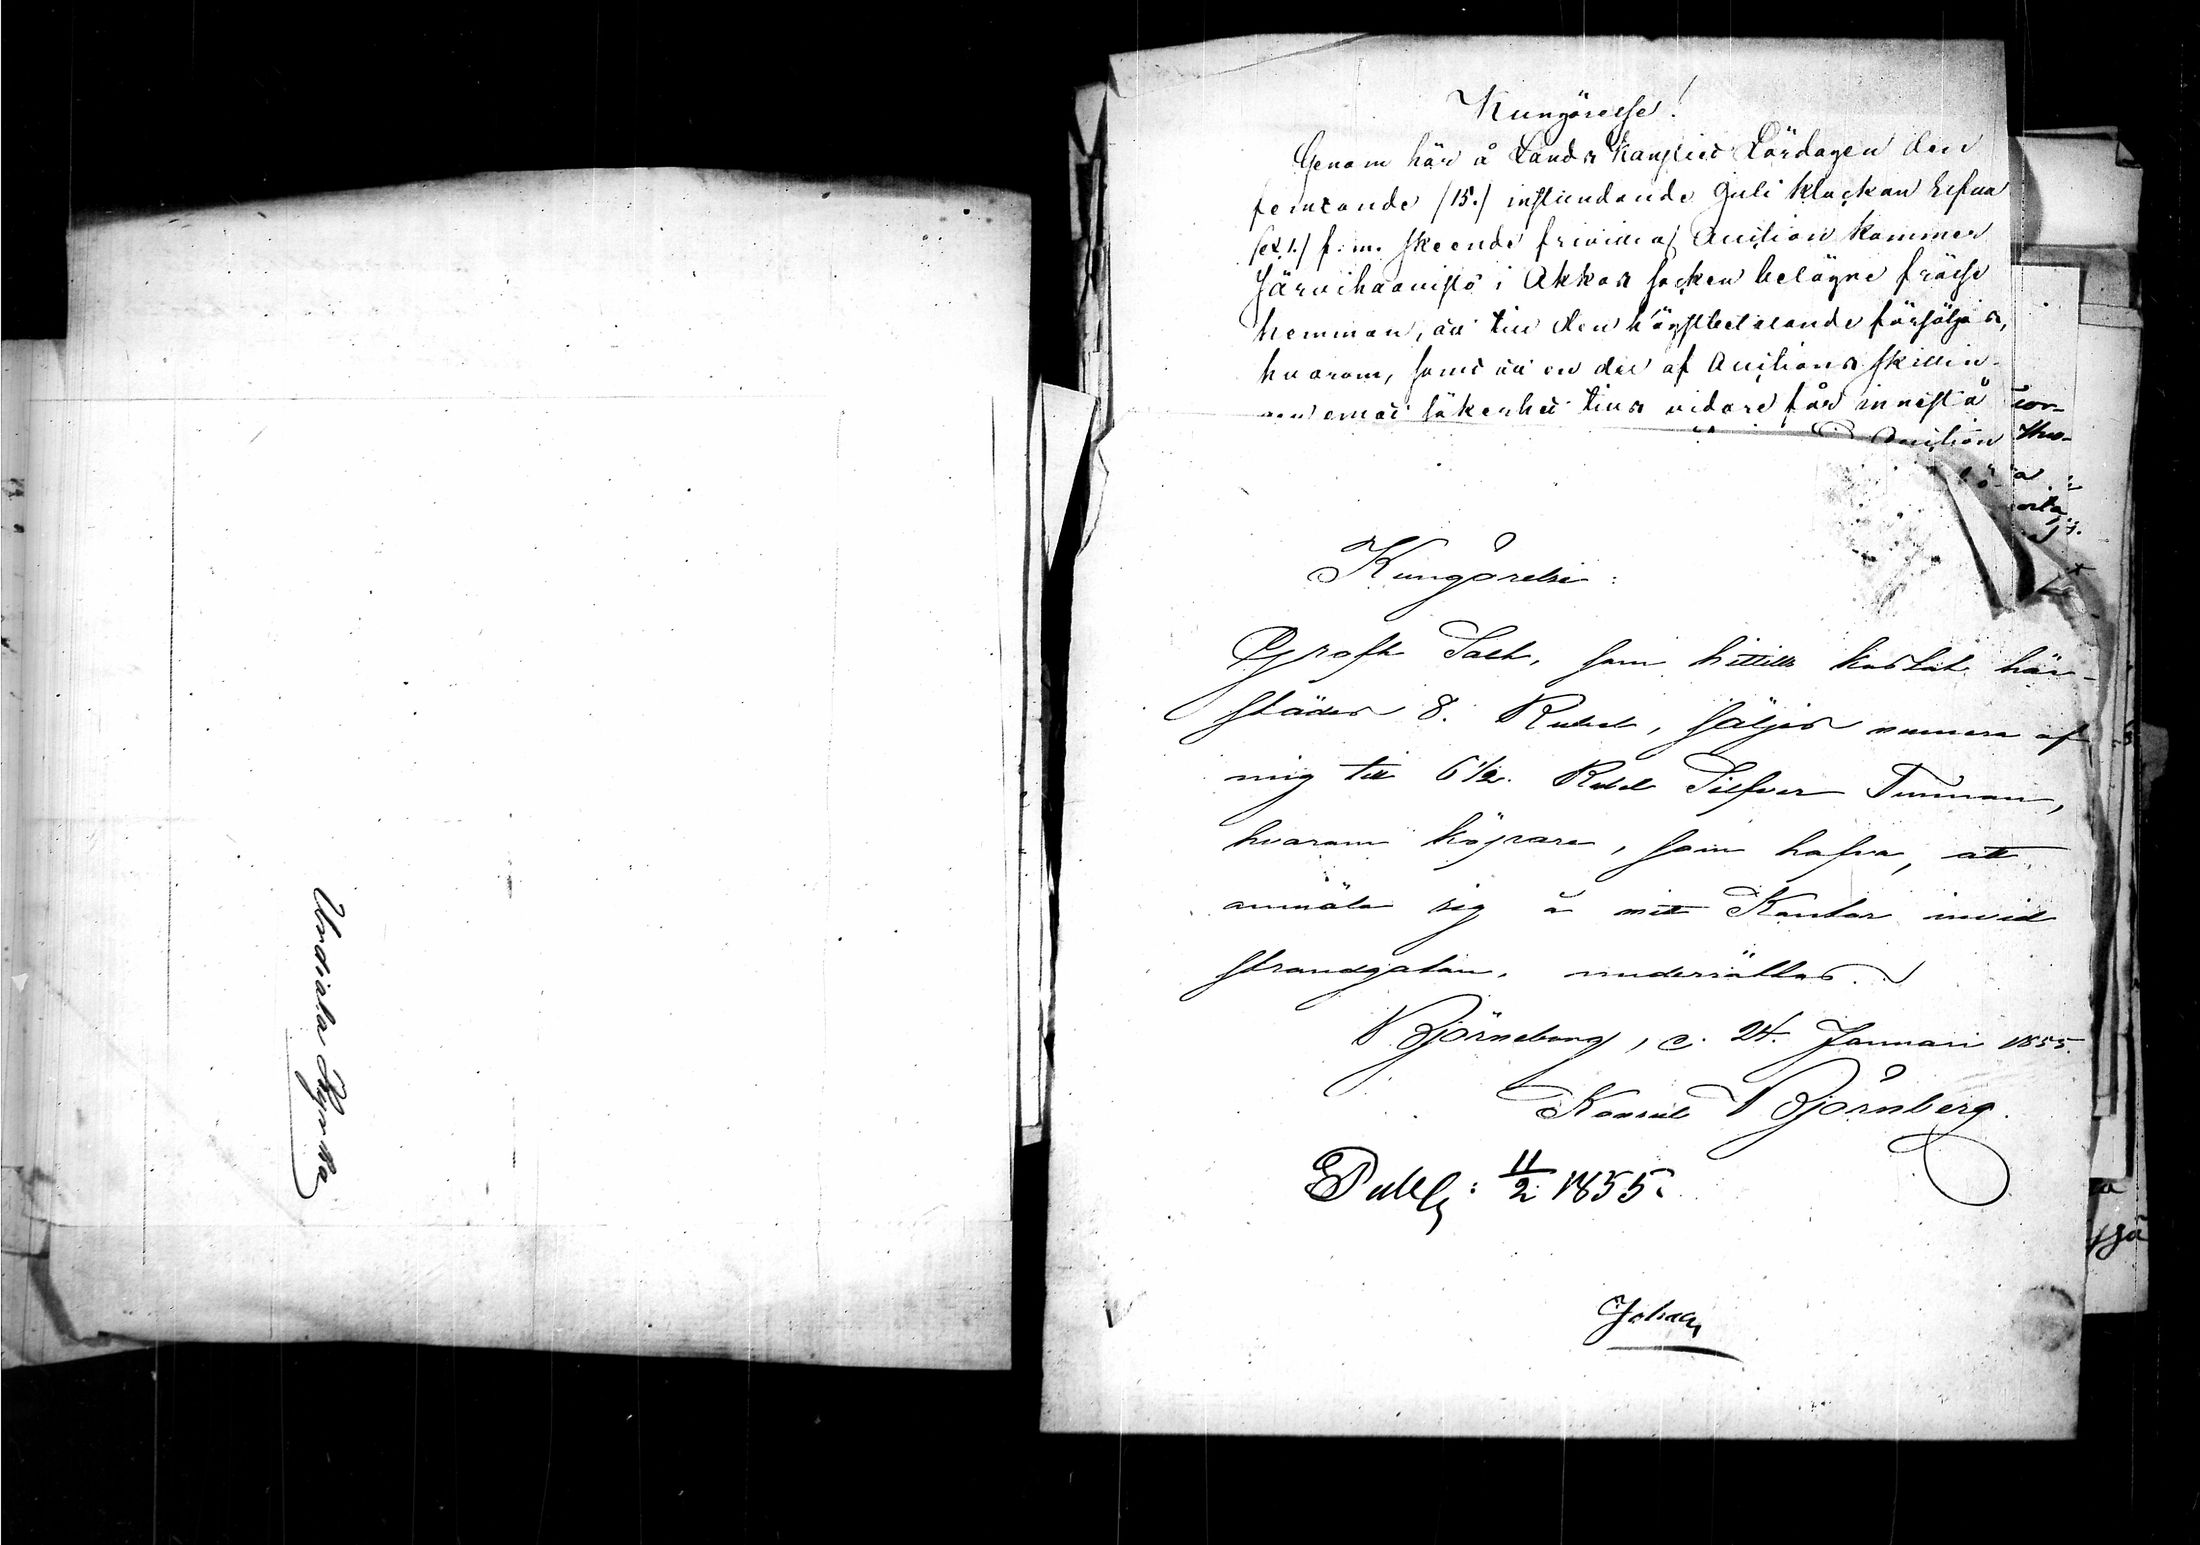 Urdiala Kyrka
Kungörelse!
Genom här å Lands Kansliet Lördagen den
femtonde /15./ instundande Juli klockan Elfva
f: m. skeende frivillig Auction kommer
Järvihaavisto i Akkas socken belägne frälse
hemman, att till den högstbetalande försäljas,
hvarom, samt att en del af Auctions skillin-
emot säkerhet tills vidare får innestå
Auction
Kungörelse:
Groft Salt, som hittills kostat här-
städes 8. Rubel, säljes numera af
mig till 6 1/2. Rubel Silfver Tunnan,
hvarom köpare, som hafva, att
anmäla sig å mitt Kontor invid
strandgatan, underrättas.
Björneborg, d. 24. Januari 1855.
Konsul Björnberg.
Publ: 11/2 1855.